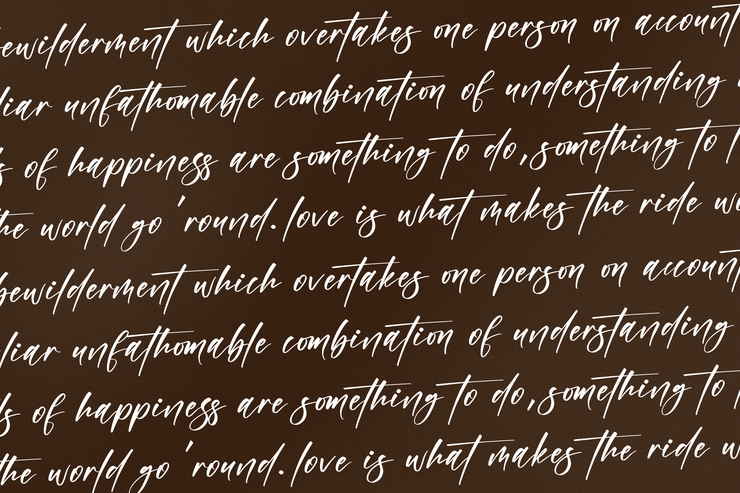 bewilderment which overtakes one person on account
liar unfathomable combination of understanding
s of happiness are something to do, something to
the world go 'round. love is what makes the ride
bewilderment which overtakes one person on account
liar unfathomable combination of understanding
ls of happiness are something to do, something to
the world go 'round. love is what makes the ride